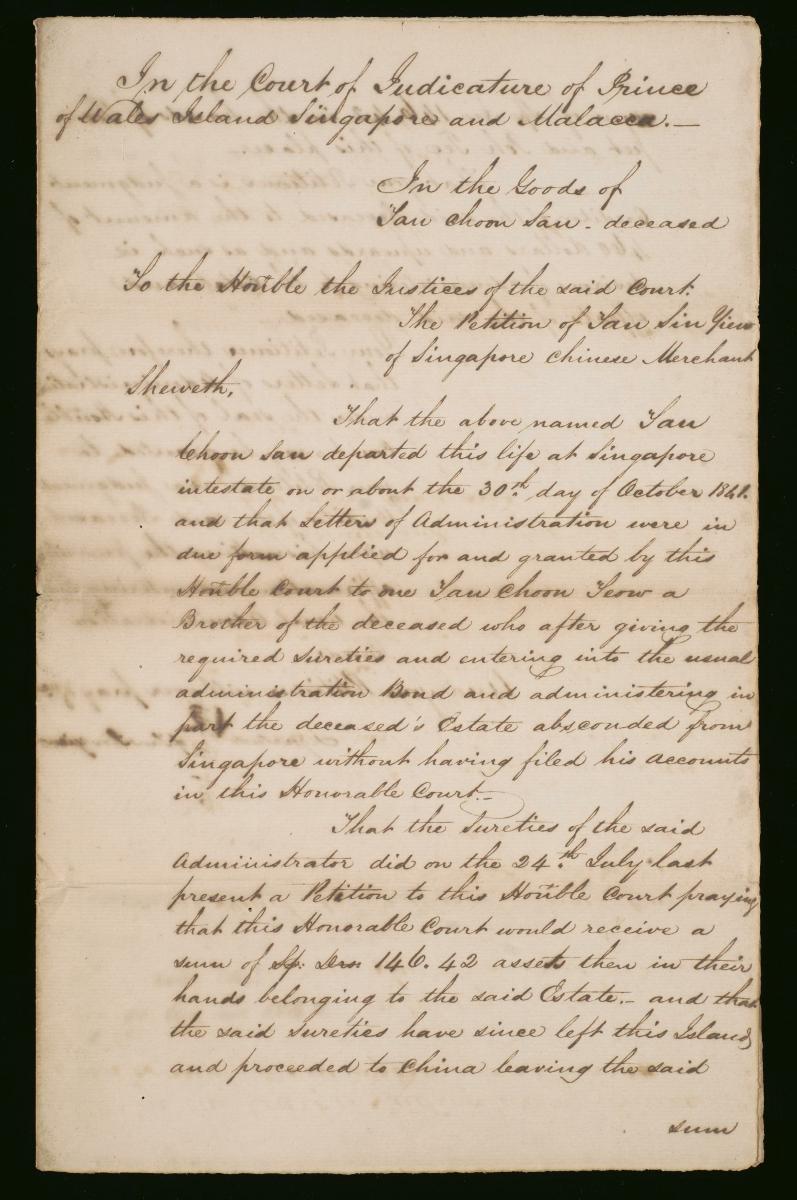 In the Court of Judicature of Prince
of Wales Island Singapore and Malacca.—
In the Goods of
Tan Choon San - deceased
To the Hon̄ble the Justices of the said Court.
The Petition of Tan Sin Yiew
of Singapore Chinese Merchant
Sheweth,
That the above named Tan
Choon San departed this life at Singapore
intestate on or about the 30th. day of October 1841.
and that Letters of Administration were in
due form applied for and granted by this
Hon̄ble Court to one Tan Choon Teow a
Brother of the deceased who after giving the
required sureties and entering into the usual
administration Bond and administering in
part the deceased's Estate absconded from
Singapore without having filed his accounts
in this Honorable Court.—
That the Sureties of the said
Administrator did on the 24th. July last
present a Petition to this Hon̄ble Court praying
that this Honorable Court would receive a
sum of Sp. Drs. 146.42 assets then in their
hands belonging to the said Estate.— and that
the said sureties have since left this Island
and proceeded to China leaving the said
sum